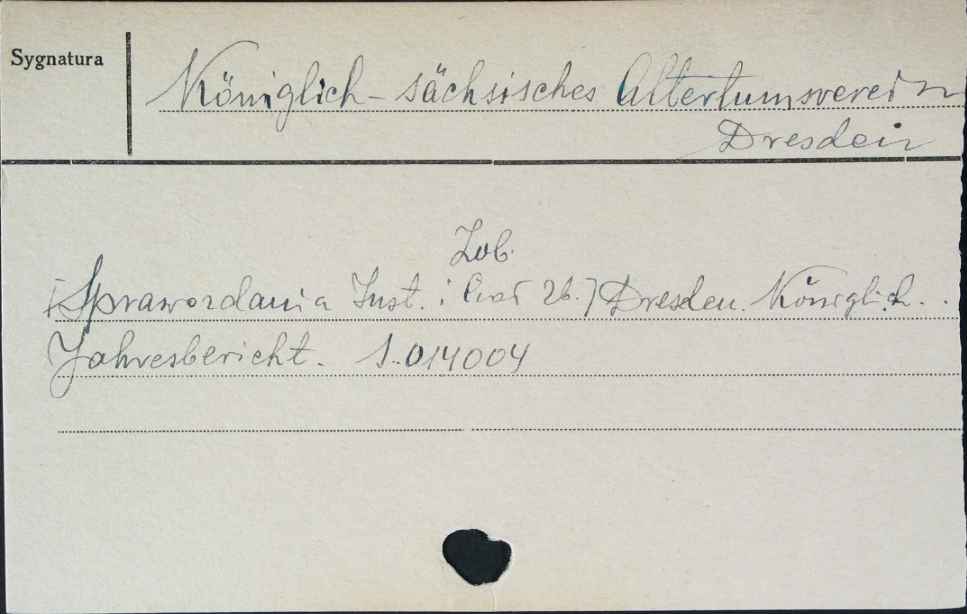 Sygnatura
Königlich-sächsisches Altertumsverein
Dresden
Zob.
[Sprawozdania Inst. i Tow. zb.] Dresden. Königlich..
Jahresbericht. S.014004